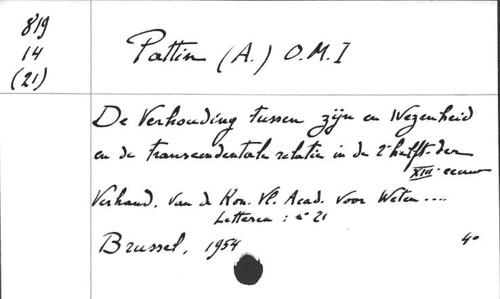 819
14
(21)
Pattin (A.) O.M.I
De Verhouding tussen zijn en Wezenheid
en de transcendentale relatie in de 2e helft der
XIIIe eeuw
Verhand. van de Kon. Vl. Acad. voor Weten....
Letteren : n° 21
Brussel, 1954 4°